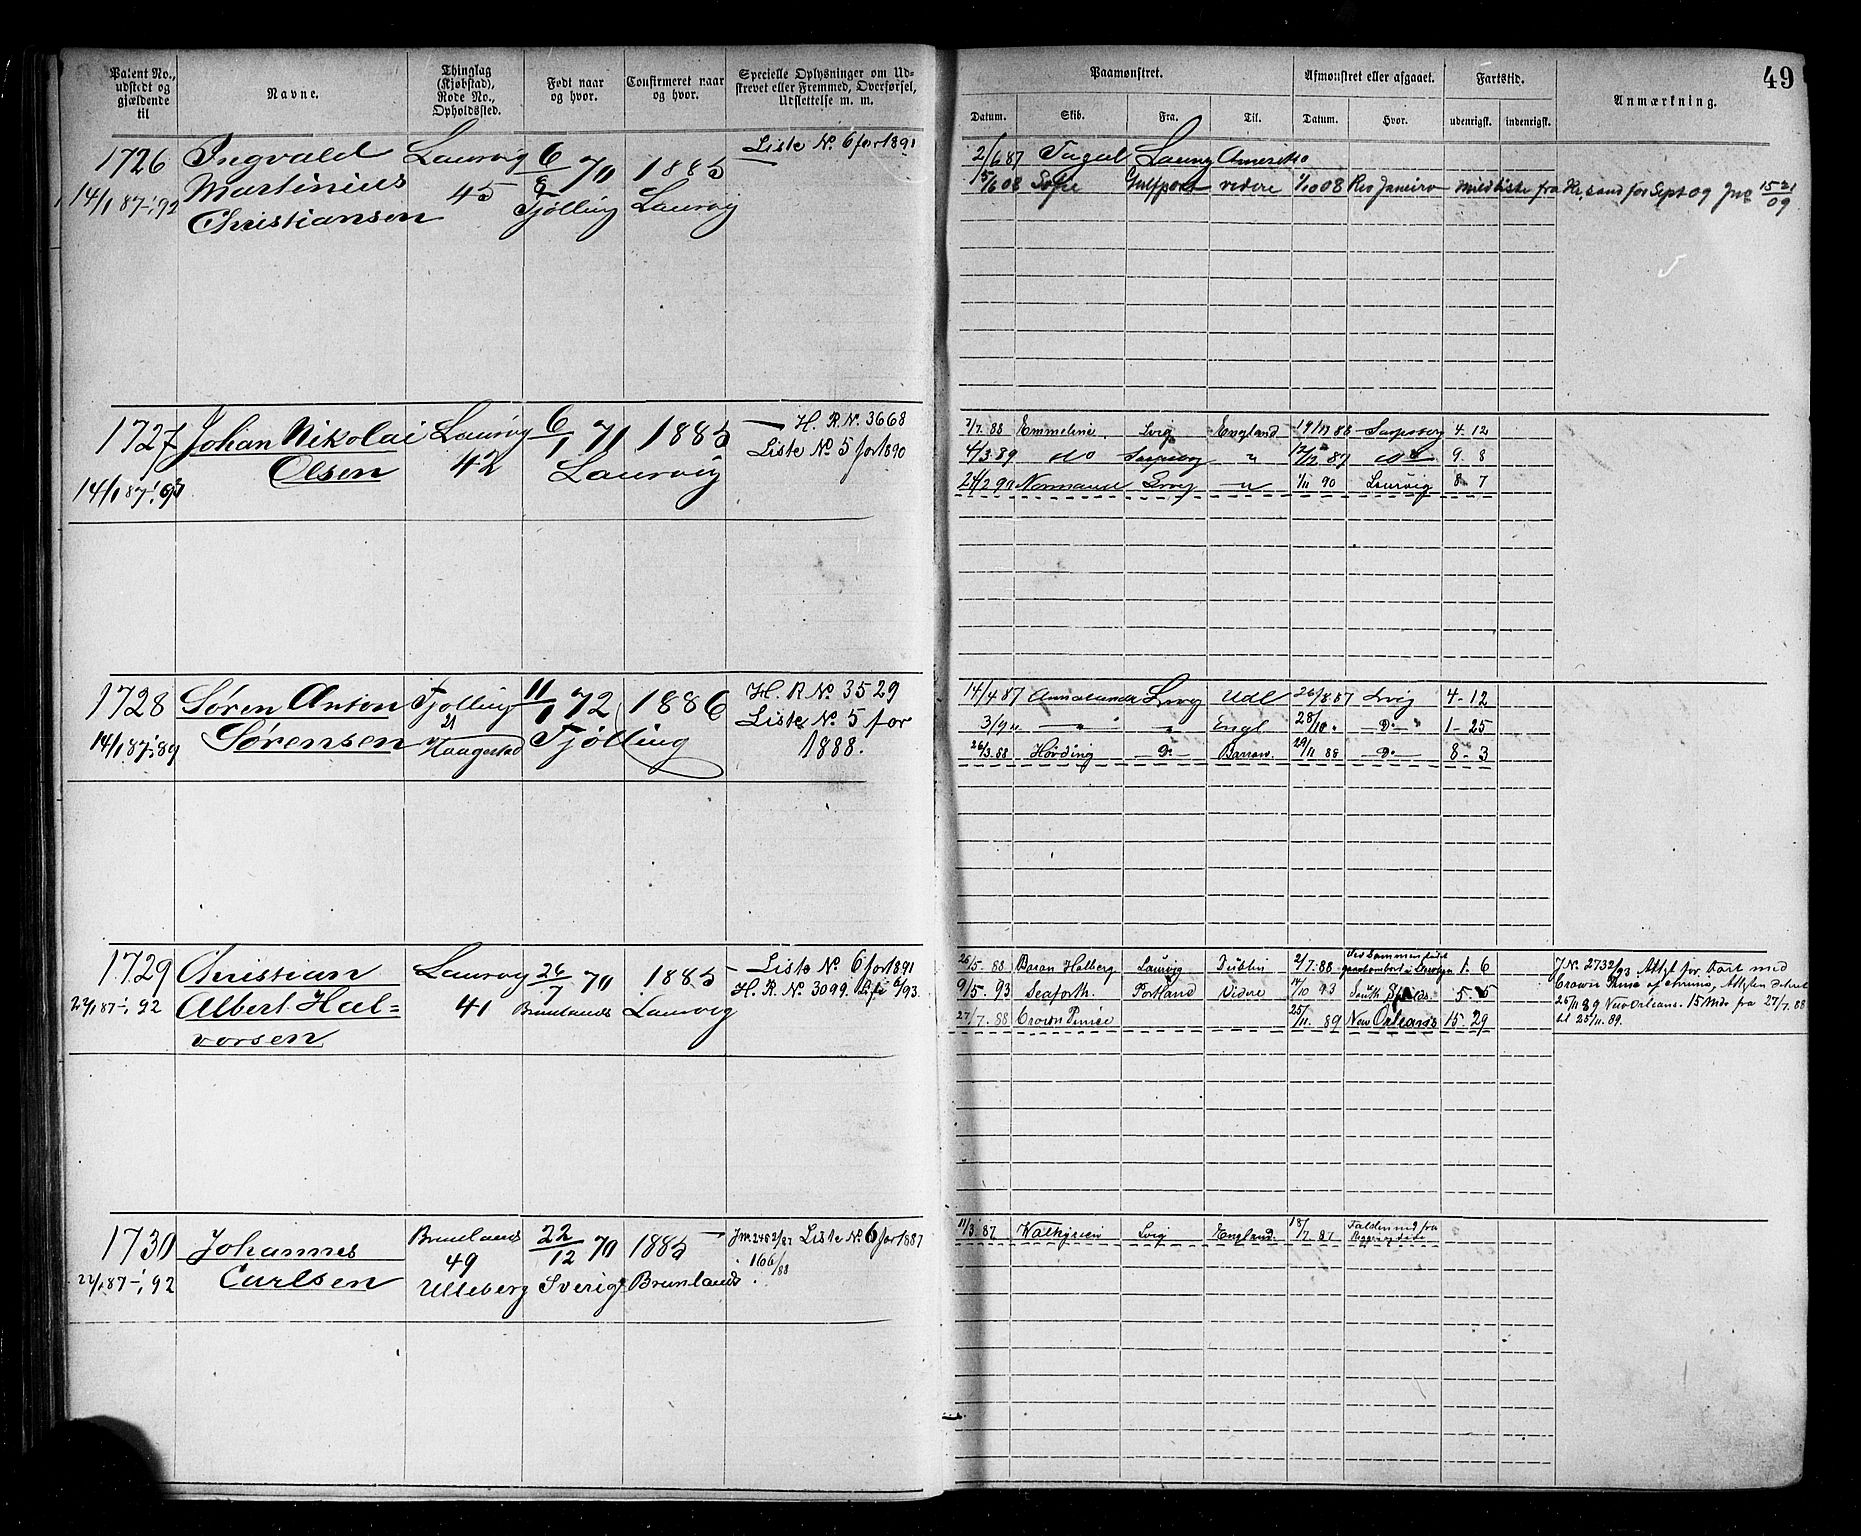 49
Patent No., udstedt og gjældende til
Navne.
Thinglag (Kjøbstad), Rode No., Opholdssted.
Født naar og hvor.
Confirmeret naar og hvor.
Specielle Oplysninger om Udskrevet eller Fremmed, Overførsel, Udslettelse m. m.
Paamønstret.
Afmønstret eller afgaaet.
Fartstid.
Anmærkning.
Datum. Skib. Fra. Til. Datum. Hvor. udenrigsk. indenrigsk.
1726 Ingvald Laurvig 6/8 70 1885 Liste No. 6 for 1891
14/1 87-1/1 92 Martinius 45 Tjølling Laurvig
Christiansen
2/6 87 Laurvig Amerika
5/6 08 Sofie Gulfport videre 1/10 08 Rio Janeiro fra for Sept 09 1521/09
1727 Johan Nikolai Laurvig 6/1 71 1885 — H. R. No. 3668
Olsen 42 Laurvig Liste No. 5 for 1890
14/1 87
7/7 88 Emmeline. Lvig England Sarpsborg 4. 12
4/3 89 do Sarpsborg " 17/12 87 do 9. 8
24/2 90 Lvig " 1/11 90 Laurvig 8. 7
1728 Søren Anton Tjølling 11/1 72 1886 H. R. No. 3529
14/1 87-1/1 89 Sørensen 21 Haugestad Tjølling Liste No. 5 for
1888.
14/4 87 Lvig Udl 26/8 87 Lvig 4-12
3/9 " — " — " Engl 28/10 " — Do — 1-25
26/3 88 Høvding — Do Barrow. 29/11 88 — Do — 8-3
1729 Christian Laurvig 26/7 70 1885 — Liste No. 6 for 1891
22/1 87-1/1 92 Albert Hal- 41 Brunlanes Laurvig H. R. No. 3099.
vorsen
26/5 88 Baron Holberg Laurvig Dublin 2/7 88 1. 6
9/5. 93 Seaforth. Portland Videre 14/10 93 South Shields. 5. 5
27/7. 88 Crown Prince 25/11. 89 New Orleans 15. 29
J No. 2732/93 Attest for Fart med
Crown Prince
25/11 89 New Orleans. 15 Mdr fra 27/7. 88
til 25/11. 89.
1730 Johannes Brunlanes 22/12 70 1885 — Liste No. 6 for 1887
22/1 87-1/1 92 Carlsen 49 Ulleberg Sverig Brunlanes 166/88
11/3. 87 Valkyrien Lvig England. 18/7. 87